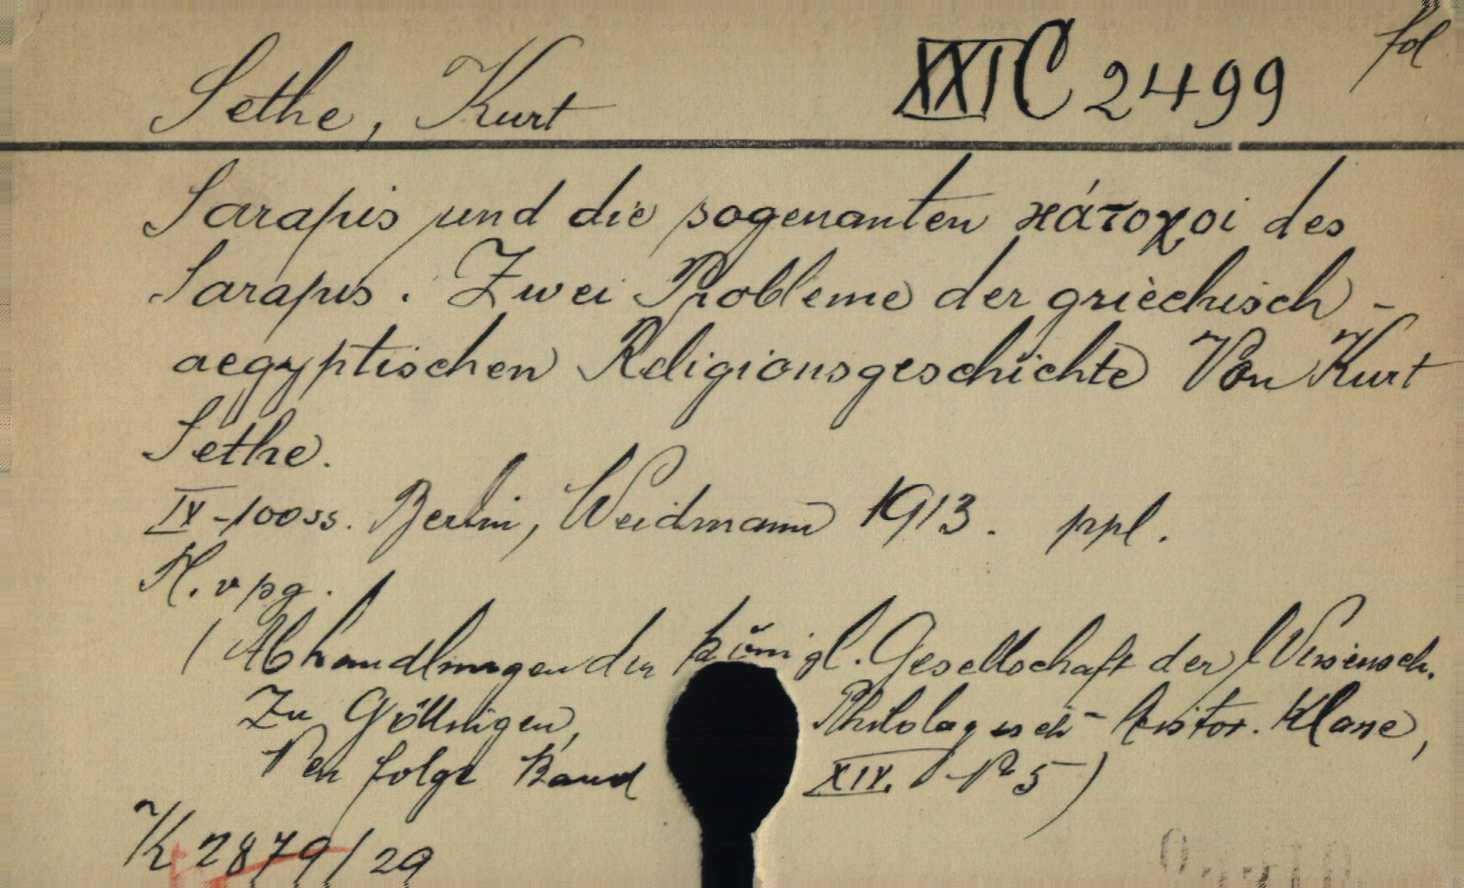 fol
Sethe, Kurt XXI C 2499
Sarapis und die sogenanten κάτοχοι des
Sarapis. Zwei Probleme der griechisch -
aegyptischen Religionsgeschichte Von Kurt
Sethe.
IV-100 ss. Berlin, Weidmann 1913. ppl.
(Abhandlungen der königl. Gesellschaft der Wissensch.
Zu Göttingen, Philologisch-histor. Klasse,
Neu folge Band XIV. No 5)
K 2879/29